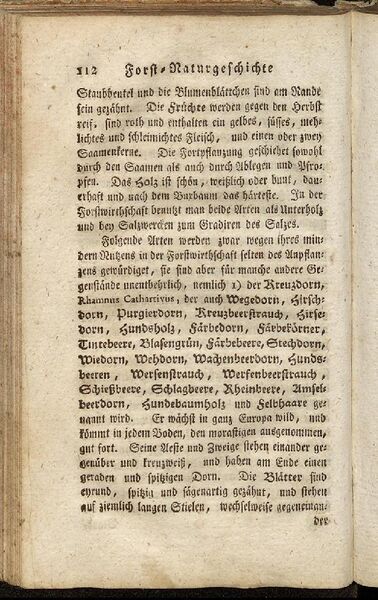 112 Forst-Naturgeschichte
Staubbeutel und die Blumenblättchen sind am Rande
fein gezähnt. Die Früchte werden gegen den Herbst
reif, sind roth und enthalten ein gelbes, süsses, meh-
lichtes und schleimichtes Fleisch, und einen oder zwey
Saamenkerne. Die Fortpflanzung geschiehet sowohl
durch den Saamen als auch durch Ablegen und Pfro-
pfen. Das Holz ist schön, weißlich oder bunt, dau-
erhaft und nach dem Buxbaum das härteste. In der
Forstwirthschaft benutzt man beide Arten als Unterholz
und bey Salzwercken zum Gradiren des Salzes.
Folgende Arten werden zwar wegen ihres min-
dern Nutzens in der Forstwirthschaft selten des Anpflan-
zens gewürdiget, sie sind aber für manche andere Ge-
genstände unentbehrlich, nemlich 1) der Kreuzdorn,
Rhamnus Catharticus, der auch Wegedorn, Hirsch-
dorn, Purgierdorn, Kreuzbeerstrauch, Hirse-
dorn, Hundsholz, Färbedorn, Färbekörner,
Tintebeere, Blasengrün, Färbebeere, Stechdorn,
Wiedorn, Wehdorn, Wachenbeerdorn, Hunds-
beeren, Wersenstrauch, Werfenbeerstrauch,
Schießbeere, Schlagbeere, Rheinbeere, Amsel-
beerdorn, Hundebaumholz und Felbhaare ge-
nannt wird. Er wächst in ganz Europa wild, und
kömmt in jedem Boden, den morastigen ausgenommen,
gut fort. Seine Aeste und Zweige stehen einander ge-
genüber und kreuzweiß, und haben am Ende einen
geraden und spitzigen Dorn. Die Blätter sind
eyrund, spitzig und sägenartig gezähnt, und stehen
auf ziemlich langen Stielen, wechselweise gegeneinan-
der